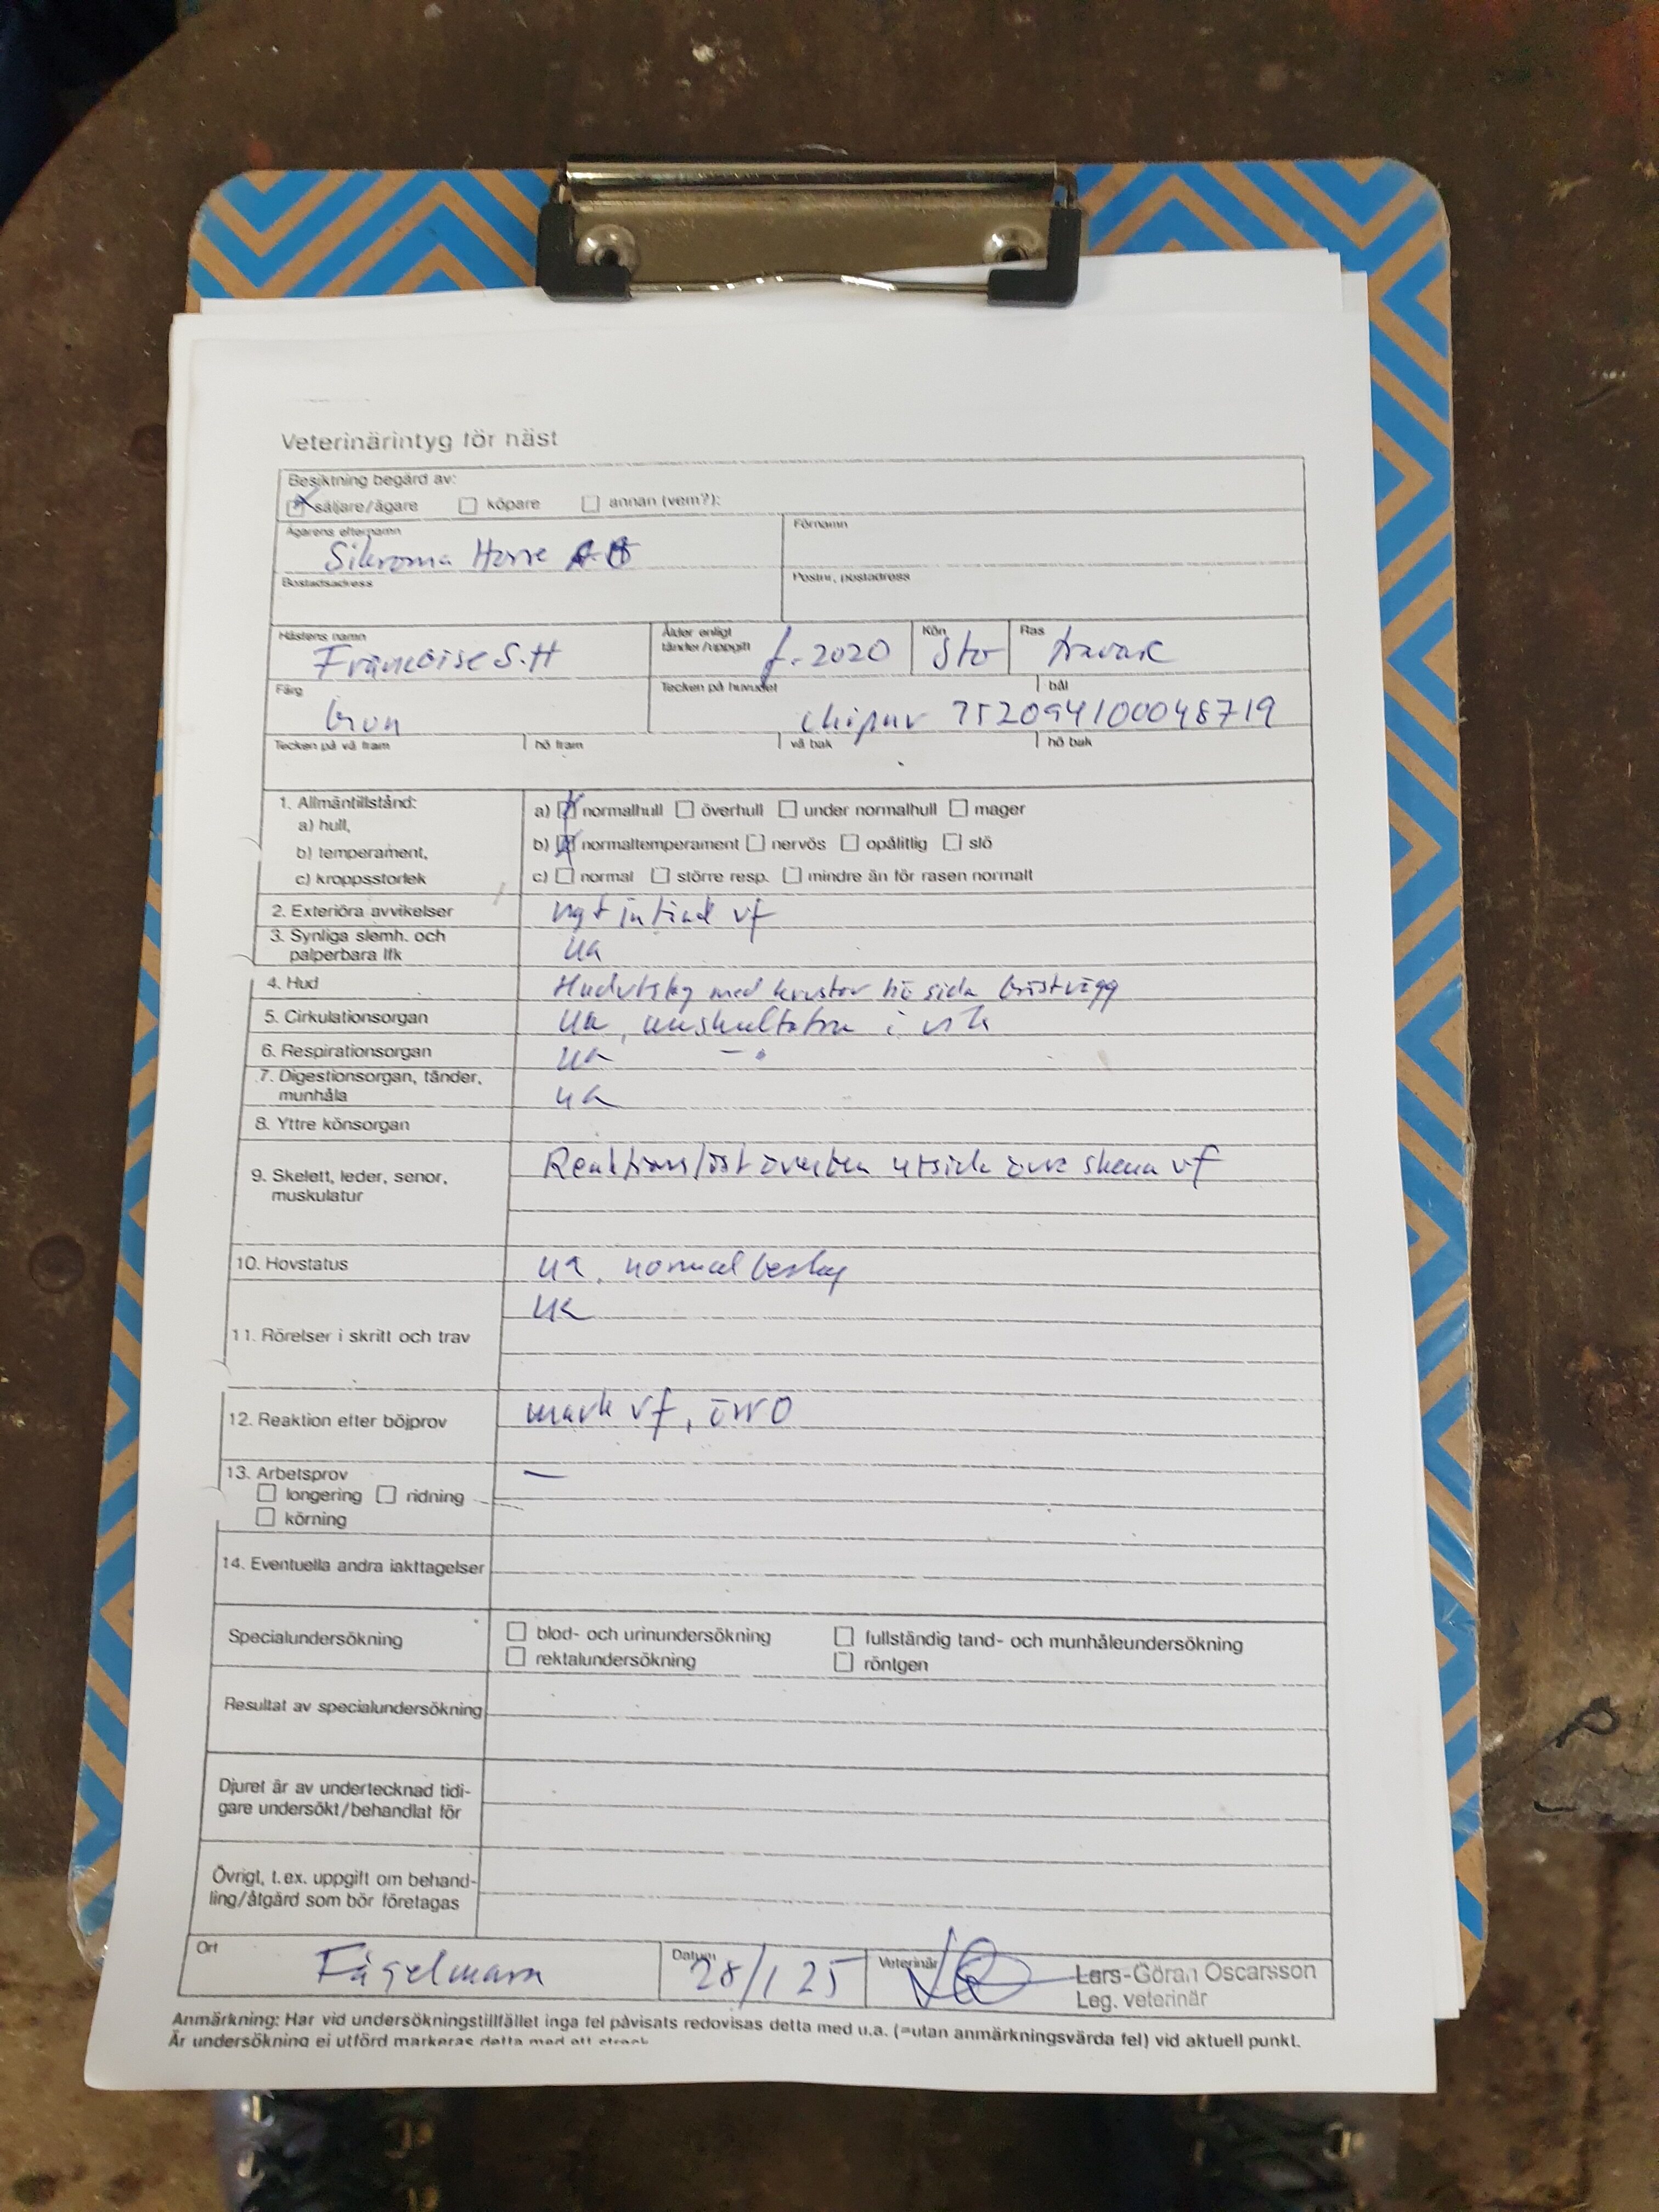 Veterinärintyg för häst
Besiktning begärd av:
säljare/ägare köpare annan (vem?):
Ägarens efternamn Förnamn
Sikroma Horse AB
Bostadsadress Postnr, postadress
Hästens namn Ålder enligt tänder/uppgift Kön Ras
Francoise S.H f. 2020 Sto travare
Färg Tecken på huvudet bål
brun chipnr 752094100048719
Tecken på vä fram hö fram vä bak hö bak
1. Allmäntillstånd:
a) hull, a) normalhull överhull under normalhull mager
b) temperament, b) normaltemperament nervös opålitlig slö
c) kroppsstorlek c) normal större resp. mindre än för rasen normalt
2. Exteriöra avvikelser ngt intåad vf
3. Synliga slemh. och
palperbara lfk ua
4. Hud Hudutslag med krustor hö sida bröstvägg
5. Cirkulationsorgan ua, auskultation i vila
6. Respirationsorgan ua
7. Digestionsorgan, tänder,
munhåla ua
8. Yttre könsorgan
9. Skelett, leder, senor,
muskulatur
Reaktionslöst överben utsida övre skena vf
10. Hovstatus ua, normal beslag
11. Rörelser i skritt och trav ua
12. Reaktion efter böjprov mark vf, övr 0
13. Arbetsprov —
longering ridning
körning
14. Eventuella andra iakttagelser
Specialundersökning blod- och urinundersökning fullständig tand- och munhåleundersökning
rektalundersökning röntgen
Resultat av specialundersökning
Djuret är av undertecknad tidi-
gare undersökt/behandlat för
Övrigt, t.ex. uppgift om behand-
ling/åtgärd som bör företagas
Ort Datum Veterinär
Fågelmara 28/1 25 Lars-Göran Oscarsson
Leg. veterinär
Anmärkning: Har vid undersökningstillfället inga fel påvisats redovisas detta med u.a. (=utan anmärkningsvärda fel) vid aktuell punkt.
Är undersökning ej utförd markeras detta med ett streck